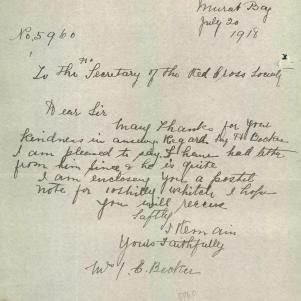 Murat Bay
July 20
1918
No. 5960
To The Secretary of the Red Cross Society
Dear Sir
Many Thanks for your
kindness in Regards my Becker
I am pleased to say I have had letter
from him since & he is quite
I am enclosing you a postel
note for 10shillg which I hope
you will receive
saftly
I Remain
Yours Faithfully
Mrs J. E. Becker